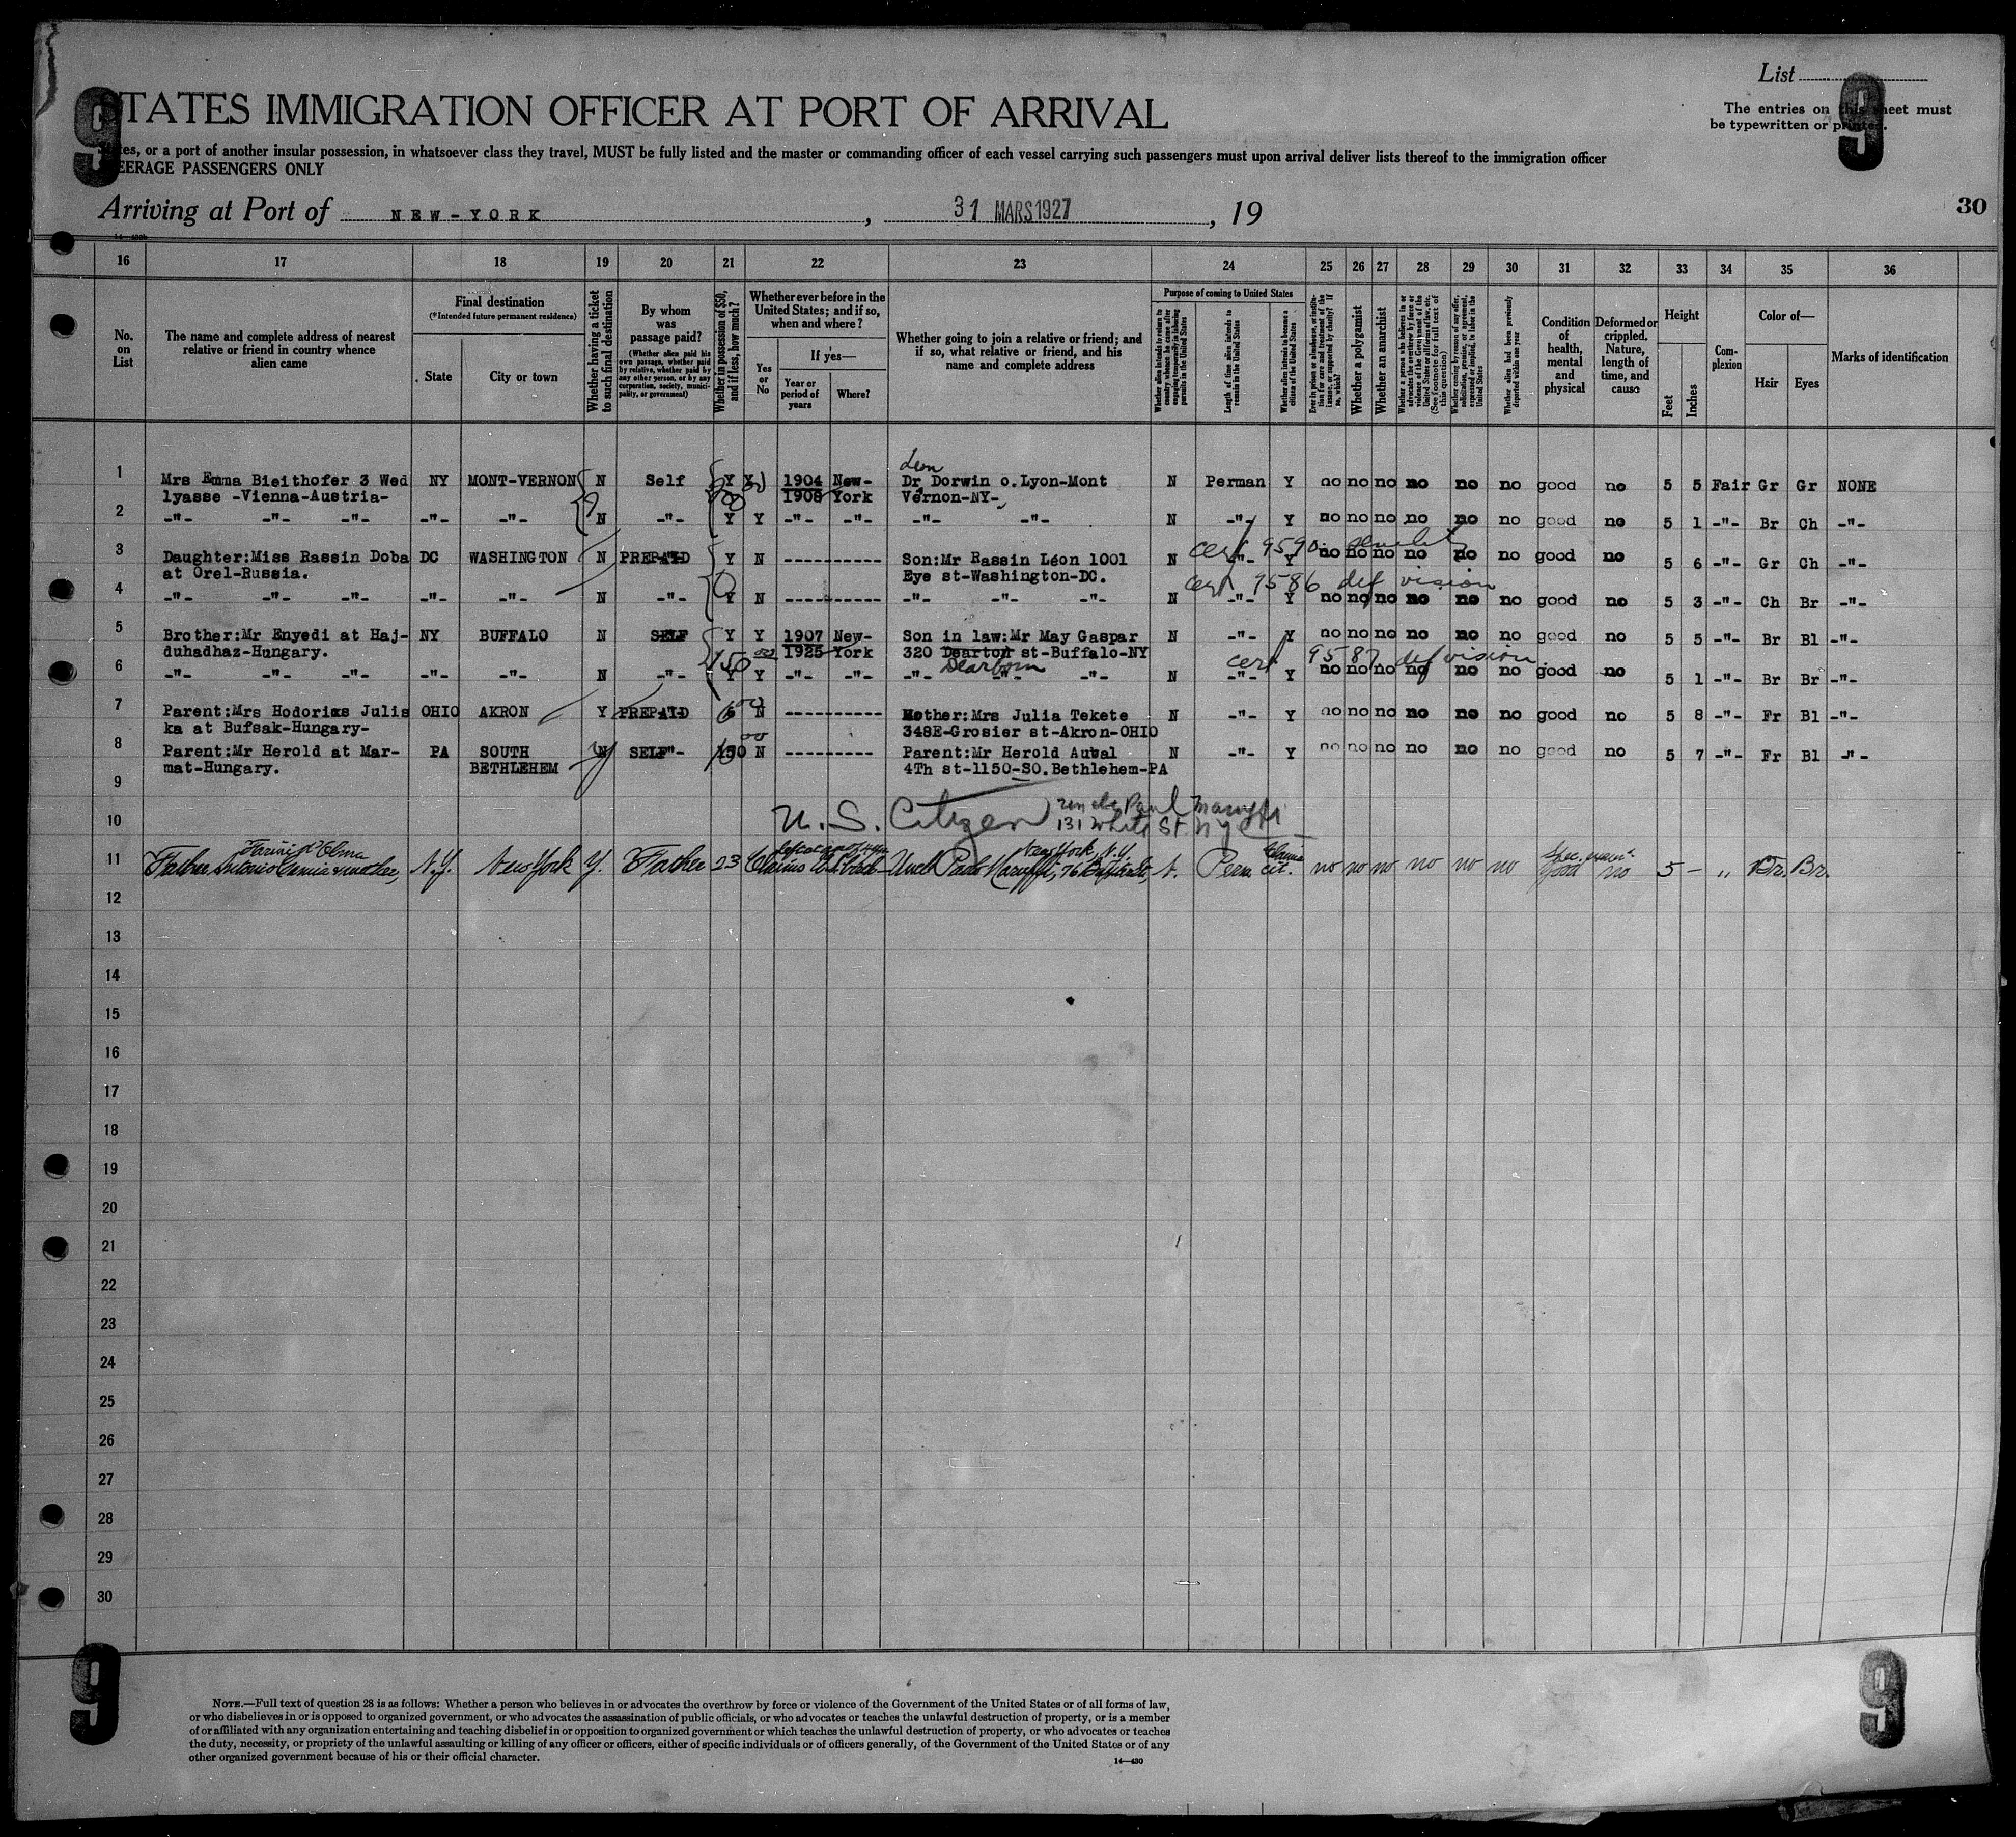 List
9 9
STATES IMMIGRATION OFFICER AT PORT OF ARRIVAL
The entries on this sheet must
be typewritten or printed.
States, or a port of another insular possession, in whatsoever class they travel, MUST be fully listed and the master or commanding officer of each vessel carrying such passengers must upon arrival deliver lists thereof to the immigration officer
STEERAGE PASSENGERS ONLY
Arriving at Port of NEW-YORK, 31 MARS 1927, 19
30
16 17 18 19 20 21 22 23 24 25 26 27 28 29 30 31 32 33 34 35 36
No. on List
The name and complete address of nearest relative or friend in country whence alien came
Final destination
(*Intended future permanent residence)
State
City or town
Whether having a ticket to such final destination
By whom was passage paid?
(Whether alien paid his own passage, whether paid by relative, whether paid by any other person, or by any corporation, society, municipality, or government)
Whether in possession of $50, and if less, how much?
Whether ever before in the United States; and if so, when and where?
Yes or No
If yes—
Year or period of years
Where?
Whether going to join a relative or friend; and if so, what relative or friend, and his name and complete address
Purpose of coming to United States
Length of time alien intends to remain in the United States
Whether alien intends to become a citizen of the United States
Whether a polygamist
Whether an anarchist
Whether alien had been previously deported within one year
Condition of health, mental and physical
Deformed or crippled. Nature, length of time, and cause
Height
Feet
Inches
Complexion
Color of—
Hair
Eyes
Marks of identification
1 Mrs Emma Bieithofer 3 Wed NY MONT-VERNON N Self Y Y 1904 New- Dr Dorwin o.Lyon-Mont N Perman Y no no no no no no good no 5 5 Fair Gr Gr NONE
Leon
lyasse -Vienna-Austria- 1908 York Vernon-NY-
2 -"- -"- -"- -"- -"- N -"- Y Y -"- -"- -"- -"- N -"- Y no no no no no no good no 5 1 -"- Br Ch -"-
3 Daughter:Miss Rassin Doba DC WASHINGTON N PREPAID Y N ---------- Son:Mr Rassin Léon 1001 N -"- Y no no no no no no good no 5 6 -"- Gr Ch -"-
cert 9590
at Orel-Russia. Eye st-Washington-DC.
cert 9586 def vision
4 -"- -"- -"- -"- -"- N -"- Y N ---------- -"- -"- -"- N -"- Y no no no no no no good no 5 3 -"- Ch Br -"-
5 Brother:Mr Enyedi at Haj- NY BUFFALO N SELF Y Y 1907 New- Son in law:Mr May Gaspar N -"- Y no no no no no no good no 5 5 -"- Br Bl -"-
duhadhaz-Hungary. 150 1925 York 320 Dearton st-Buffalo-NY
Dearborn
cert 9587 def vision
6 -"- -"- -"- -"- -"- N -"- Y Y -"- -"- -"- -"- -"- N -"- Y no no no no no no good no 5 1 -"- Br Br -"-
7 Parent:Mrs Hodorics Julis OHIO AKRON Y PREPAID N ---------- Mother:Mrs Julia Tekete N -"- Y no no no no no no good no 5 8 -"- Fr Bl -"-
ka at Bufsak-Hungary- 348E-Grosier st-Akron-OHIO
8 Parent:Mr Herold at Mar- PA SOUTH N SELF"- 150 N ---------- Parent:Mr Herold Autal N -"- Y no no no no no no good no 5 7 -"- Fr Bl -"-
mat-Hungary. BETHLEHEM 4Th st-1150-SO.Bethlehem-PA
9
10 U. S. Citizen uncle Paul
131 White St. NYC
11 Father Antonio mother, N.Y. New York Y. Father 23 Claims U.S. Uncle Paolo N. Perm. Claims cit. no no no no no no good no 5 - " Br. Br.
New York, N.Y.
12
13
14
15
16
17
18
19
20
21
22
23
24
25
26
27
28
29
30
9 9
NOTE.—Full text of question 28 is as follows: Whether a person who believes in or advocates the overthrow by force or violence of the Government of the United States or of all forms of law,
or who disbelieves in or is opposed to organized government, or who advocates the assassination of public officials, or who advocates or teaches the unlawful destruction of property, or is a member
of or affiliated with any organization entertaining and teaching disbelief in or opposition to organized government or which teaches the unlawful destruction of property, or who advocates or teaches
the duty, necessity, or propriety of the unlawful assaulting or killing of any officer or officers, either of specific individuals or of officers generally, of the Government of the United States or of any
other organized government because of his or their official character.
14—430